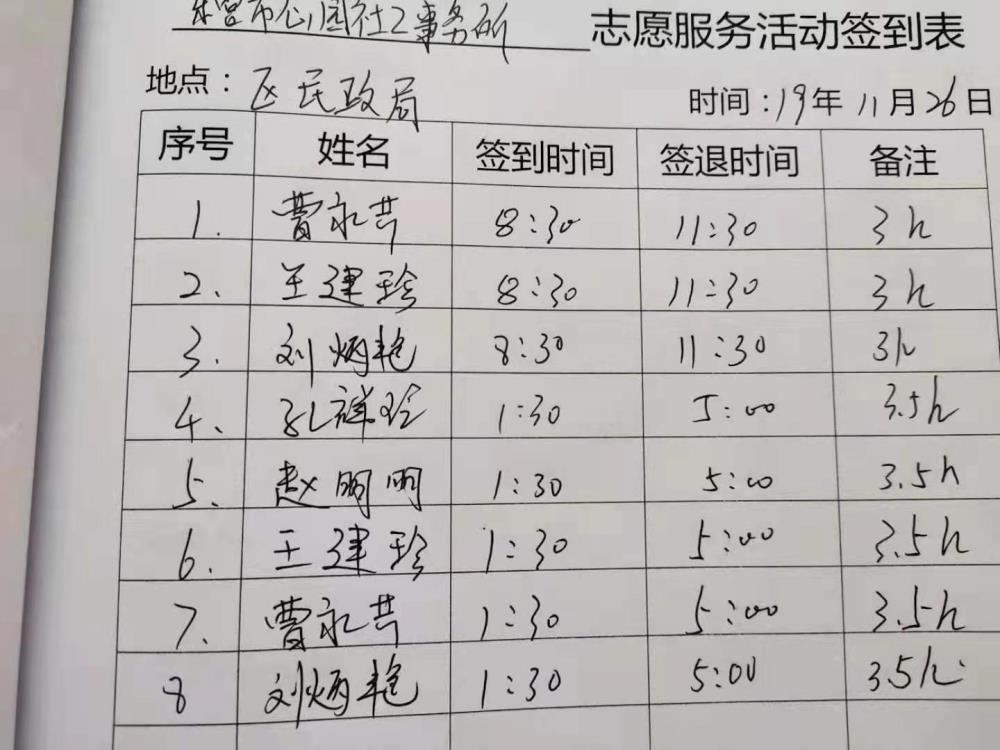 东营市心园社工事务所 志愿服务活动签到表
地点：区民政局 时间：19年11月26日
序号 姓名 签到时间 签退时间 备注
1. 曹永芹 8:30 11:30 3h
2. 王建珍 8:30 11:30 3h
3. 刘炳艳 8:30 11:30 3h
4. 孔祥玲 1:30 5:00 3.5h
5. 赵明明 1:30 5:00 3.5h
6. 王建珍 1:30 5:00 3.5h
7. 曹永芹 1:30 5:00 3.5h
8 刘炳艳 1:30 5:00 3.5h